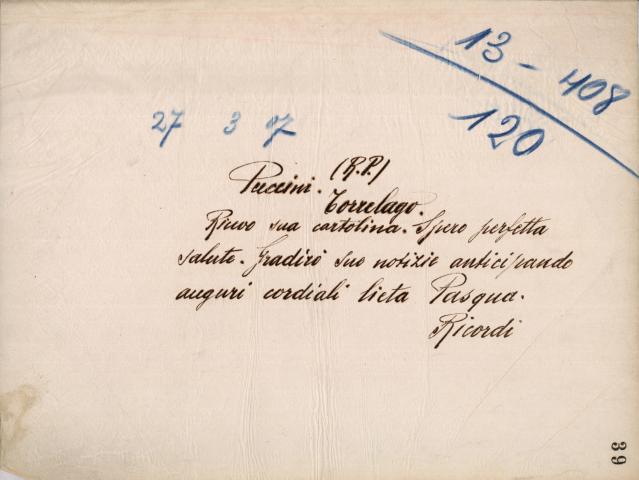 13 - 408
120
27 3 07
(R.P.)
Puccini. Torrelago.
Ricevo sua cartolina. Spero perfetta
salute. Gradirò sue notizie anticipando
auguri cordiali lieta Pasqua.
Ricordi
39